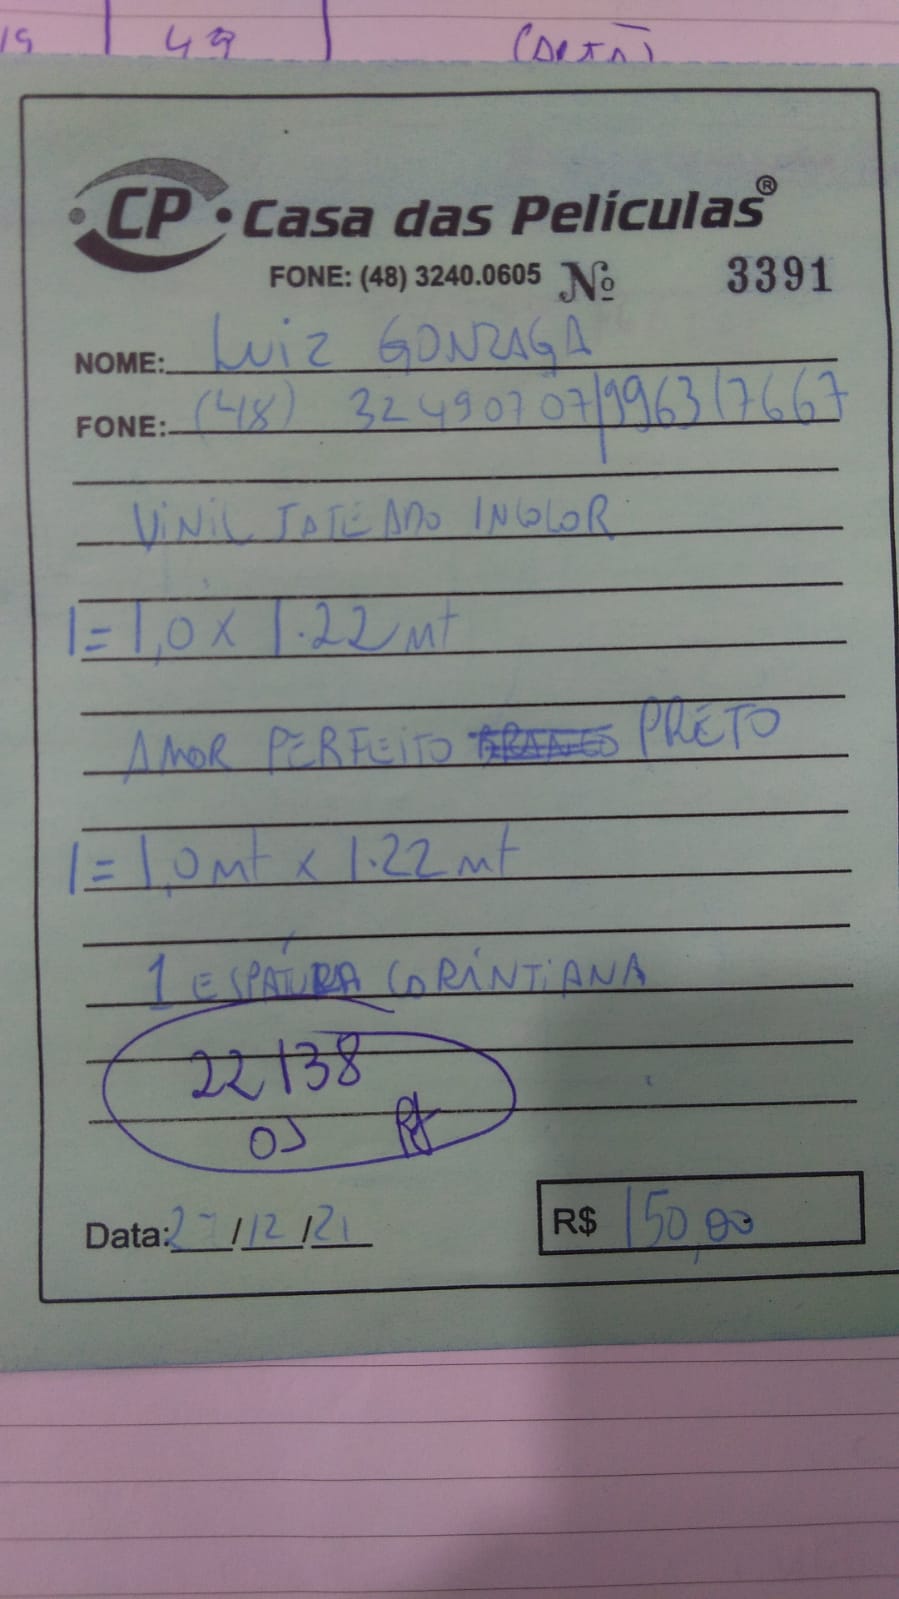 19 49
CP Casa das Películas®
FONE: (48) 3240.0605 Nº 3391
NOME: LUIZ GONZAGA
FONE: (48) 32490707/996317667
VINIL JATEADO INCOLOR
1 = 1,0 x 1.22 mt
AMOR PERFEITO PRETO
1 = 1,0 mt x 1.22 mt
1 ESPÁTURA CORINTIANA
22138
OS
Data: 27/12/21 R$ 150,00